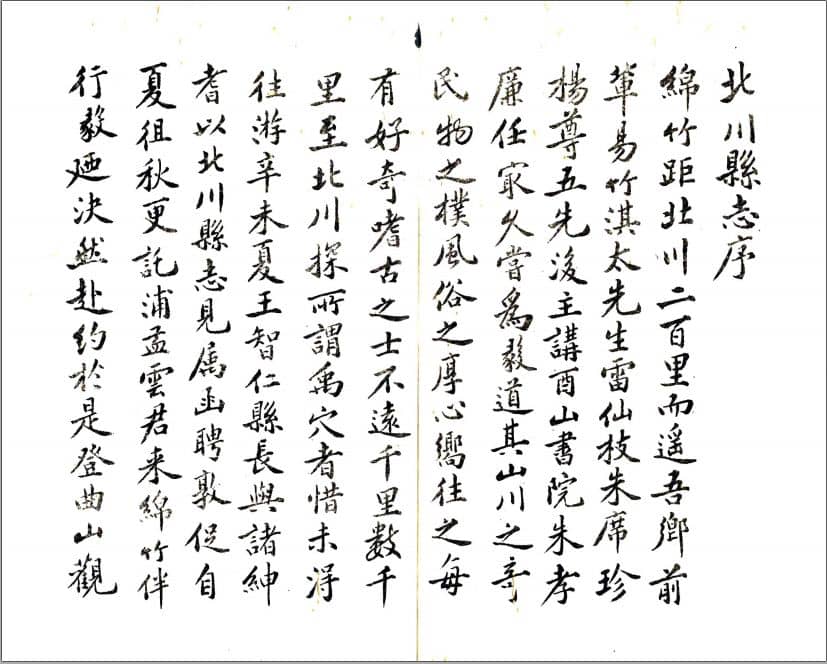 北川縣志序
綿竹距北川二百里而遥吾鄉前
輩易竹淇太先生雷仙枝朱席珍
楊尊五先後主講酉山書院朱孝
廉任㝡久嘗爲毅道其山川之奇
民物之樸風俗之厚心嚮往之每
有好奇嗜古之士不遠千里數千
里至北川探所謂禹穴者惜未得
往游辛未夏王智仁縣長與諸紳
耆以北川縣志見属函聘敦促自
夏徂秋更託浦孟雲君来綿竹伴
行毅廼決然赴約於是登曲山觀